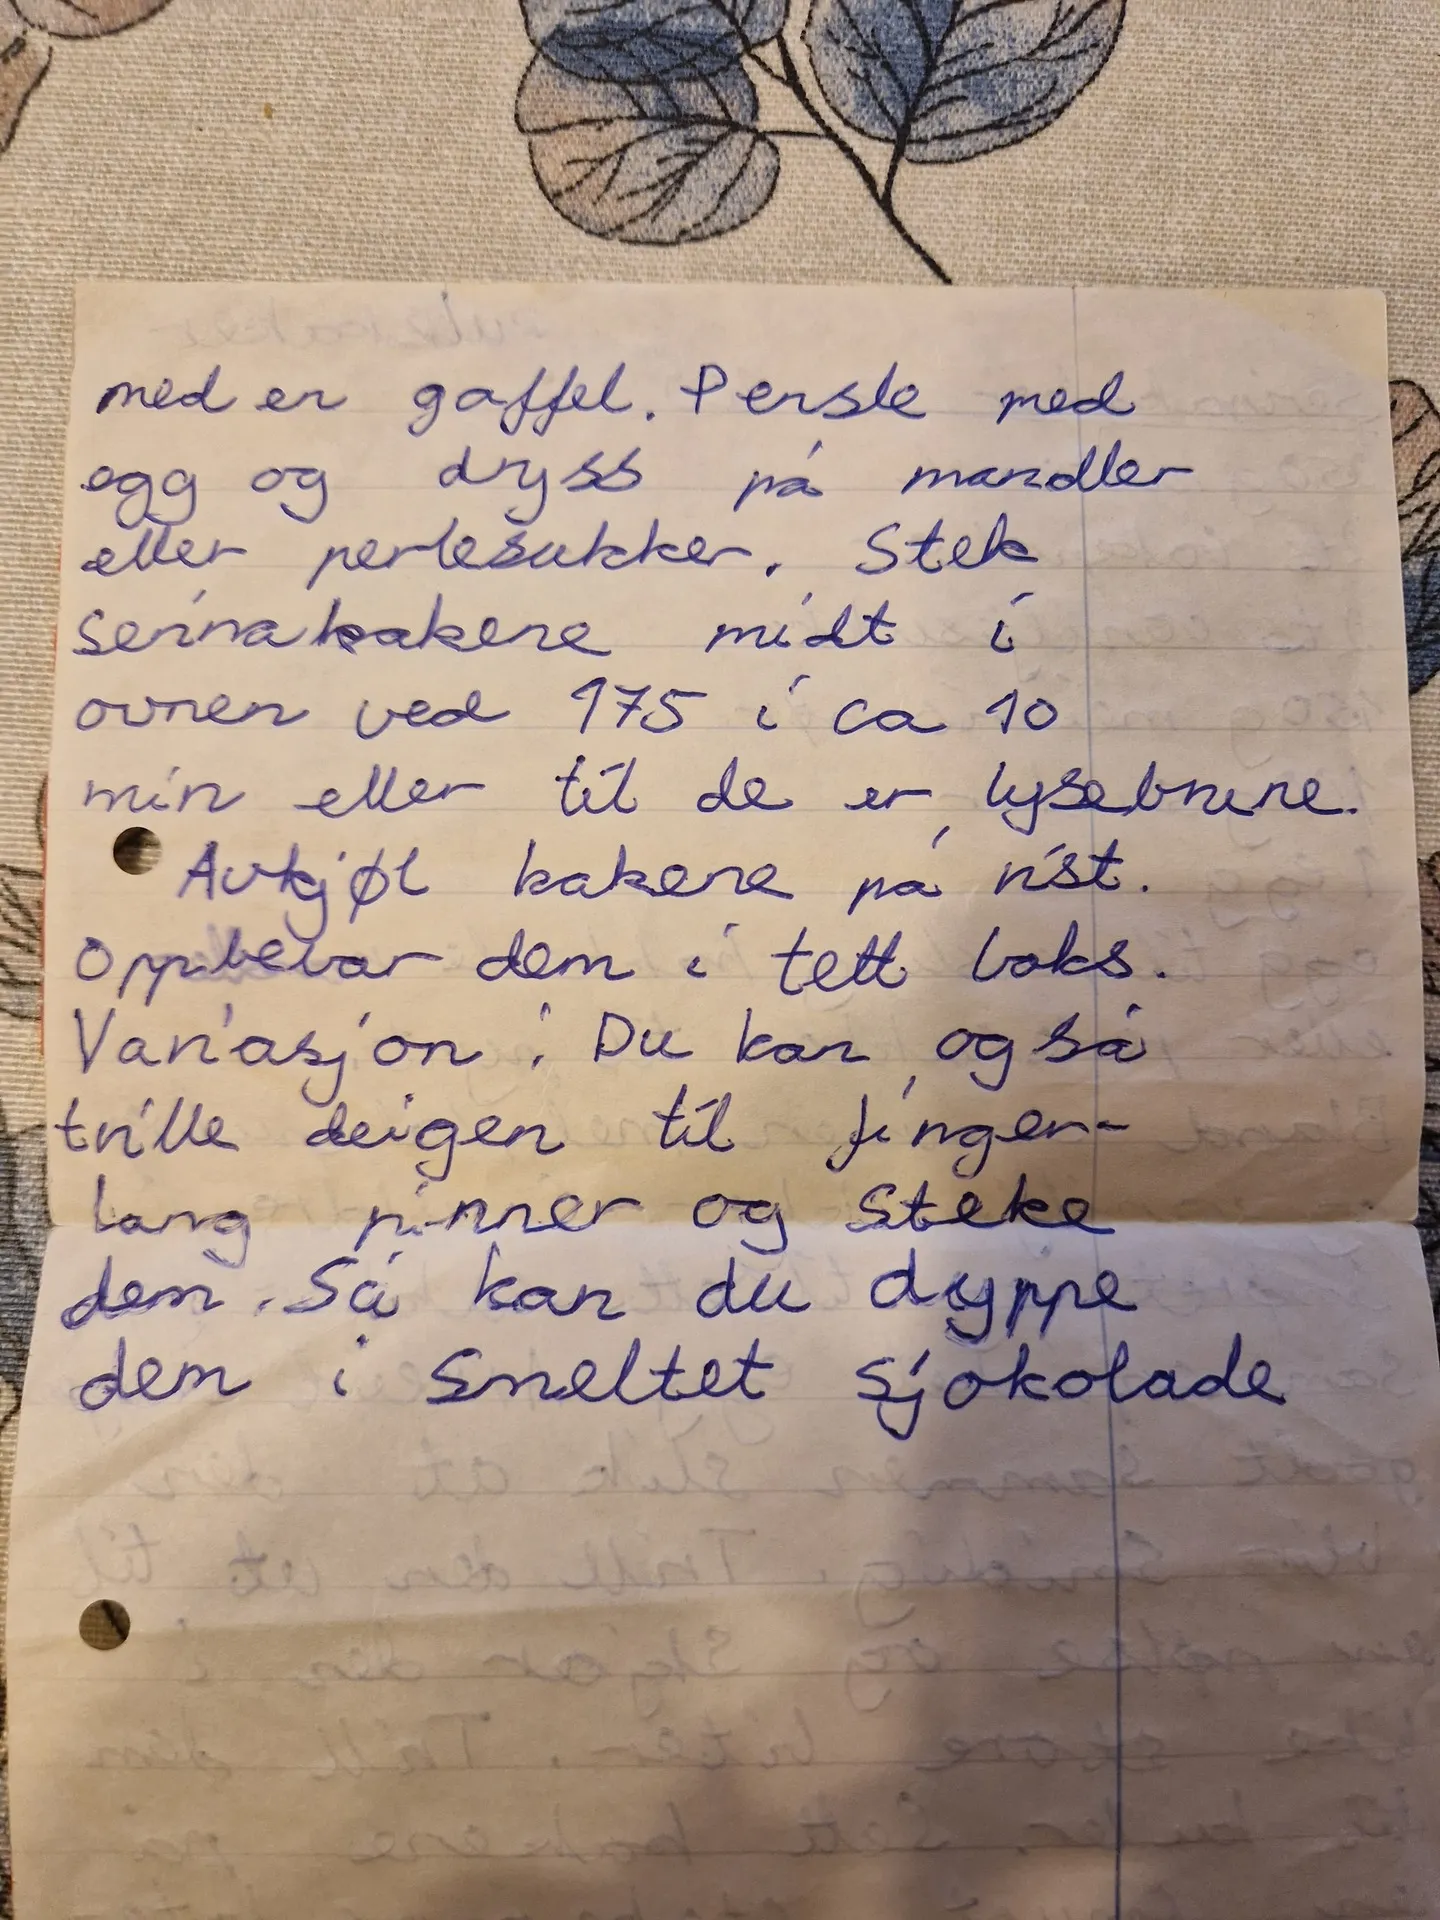 med en gaffel. Pensle med
egg og dryss på mandler
eller perlesukker. Stek
serinakakene midt i
ovnen ved 175 i ca 10
min eller til de er lysebrune.
Avkjøl kakene på rist.
Oppbevar dem i tett boks.
Variasjon: Du kan også
trille deigen til finger-
lang pinner og steke
dem. Så kan du dyppe
dem i smeltet sjokolade